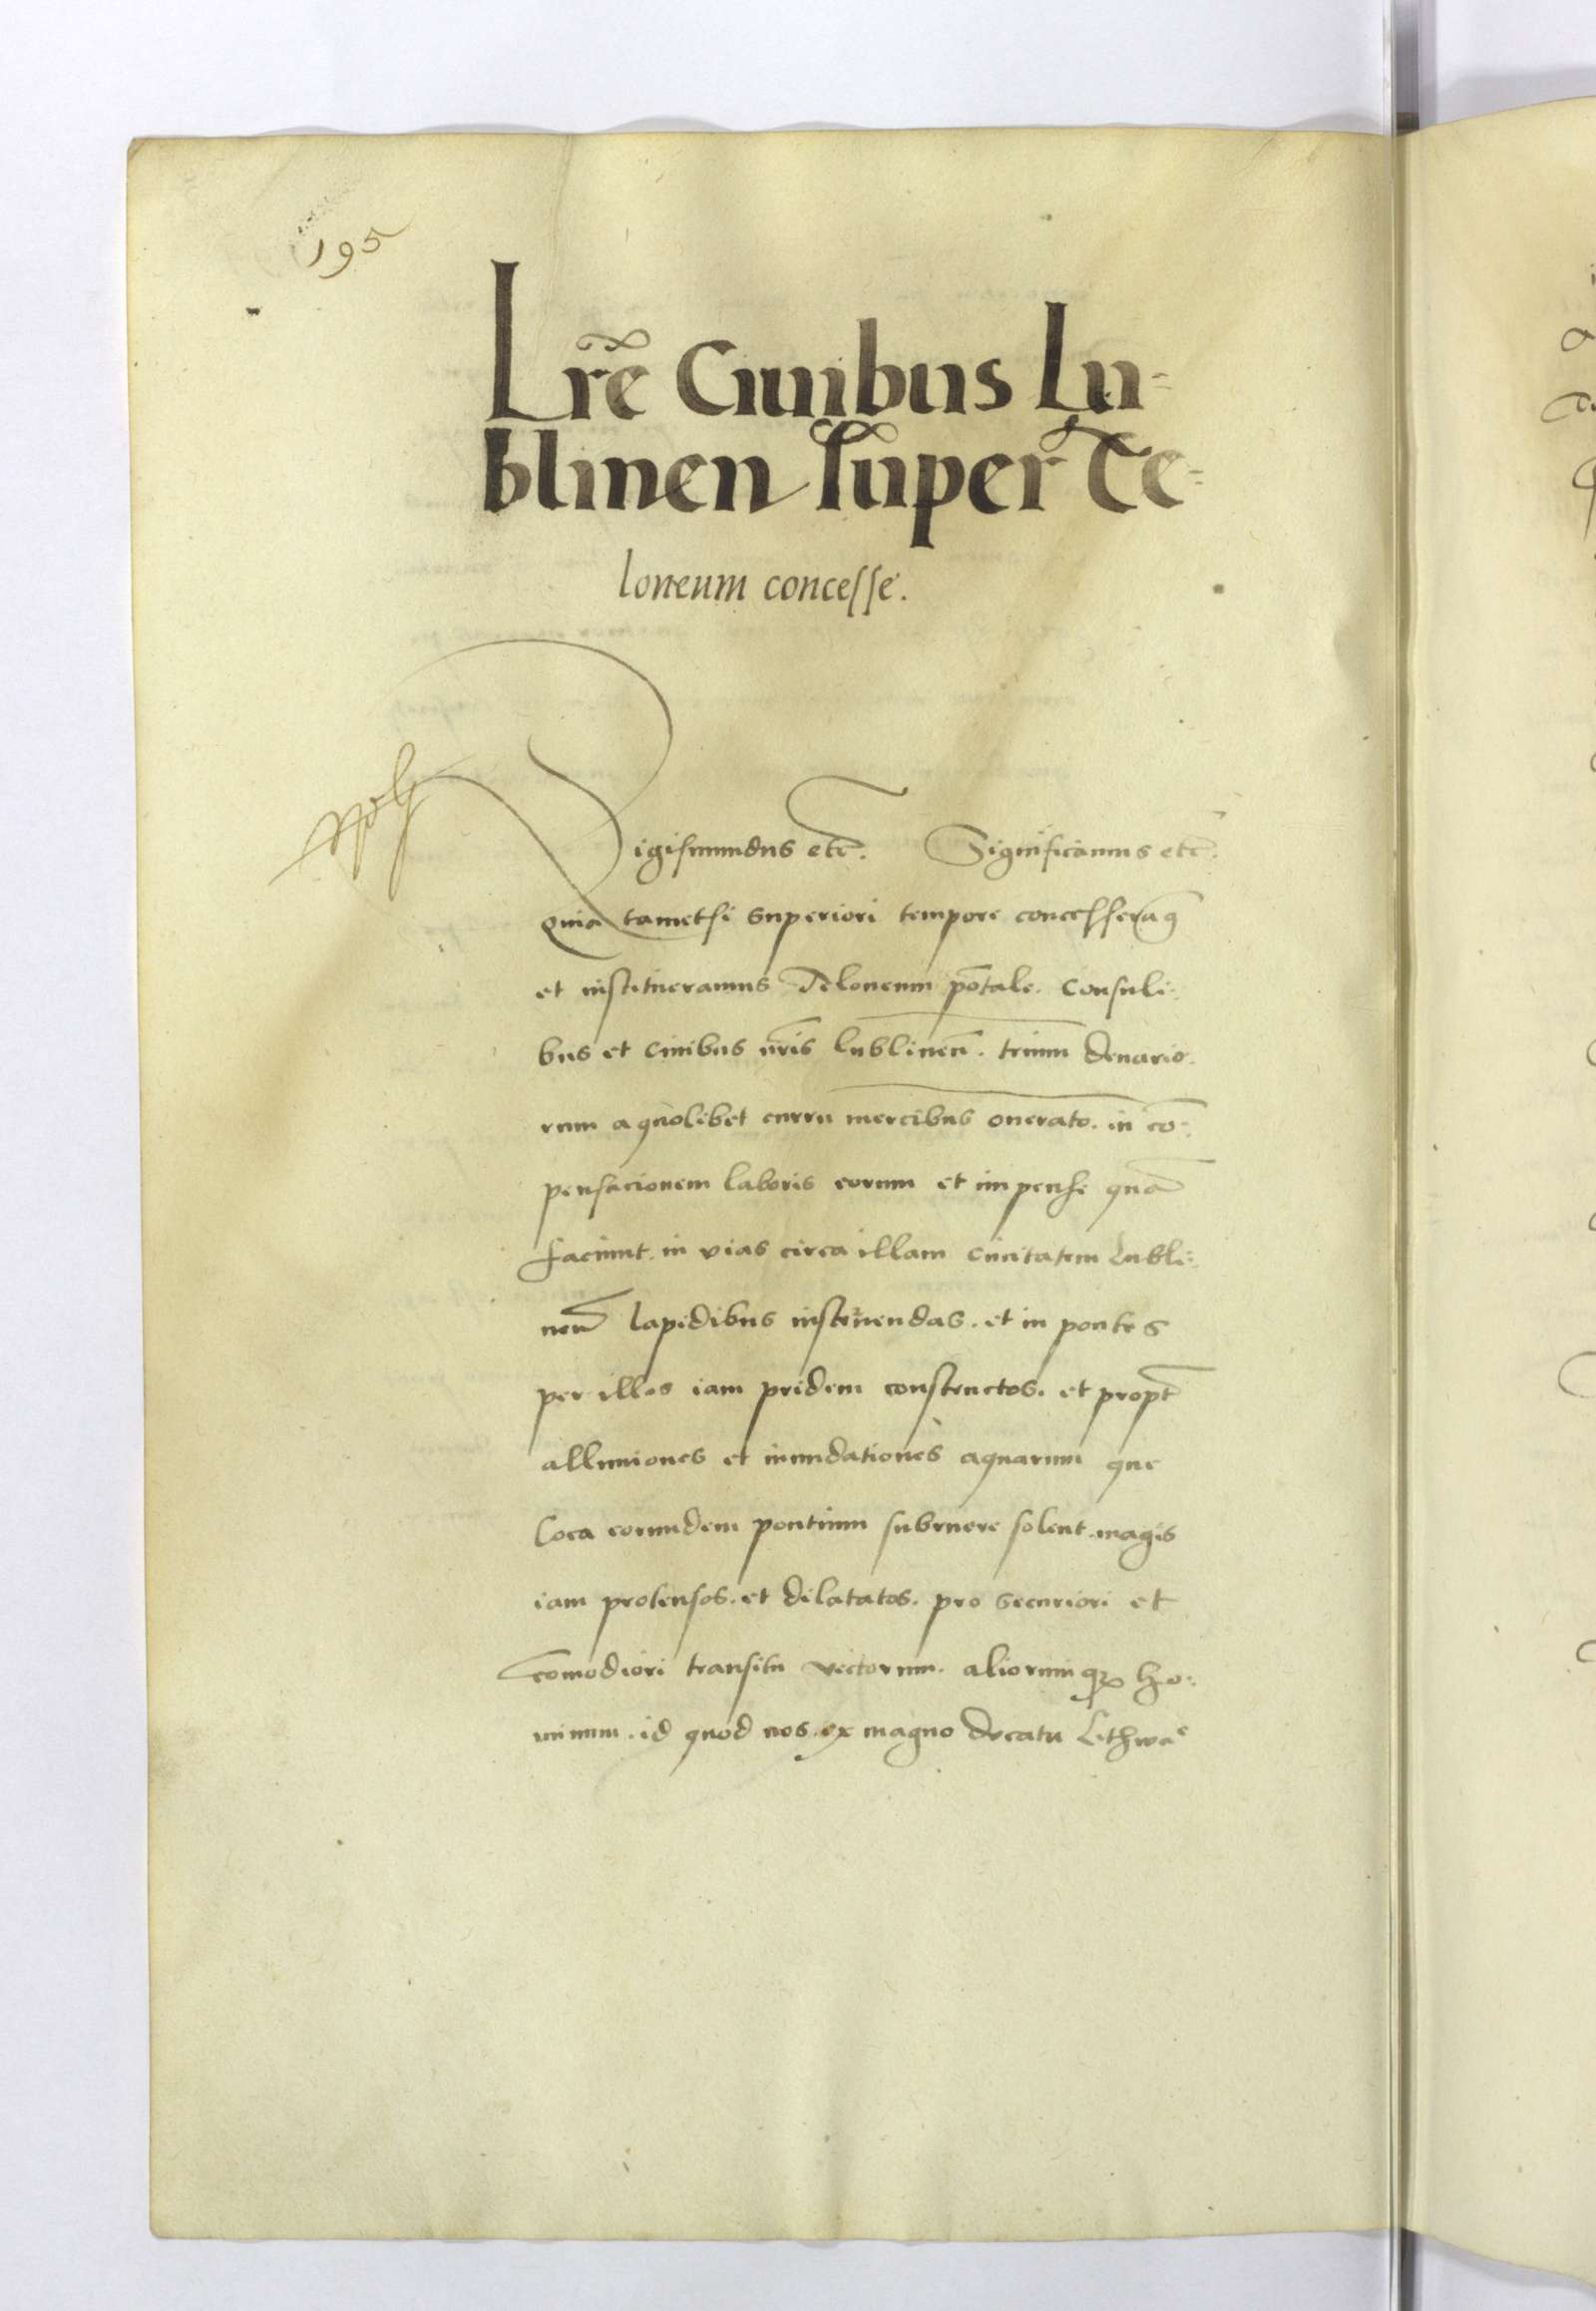 195
Lr̃e Ciuibus Lu-
blinen̄ super Te-
loneum concesse.
Sigismundus etc̃. Significamus etc̃.
quia tametsi superiori tempore concesseramꝰ
et institueramus Teloneum põtale. Consuli-
bus et Ciuibus nr̃is lublinen̄. trium denario-
rum a quolibet curru mercibus onerato. in cõ-
pensacionem laboris eorum et impense quã
faciunt. in vias circa illam Ciuitatem Lubli-
nen̄ lapidibus instruendas. et in pontes
per illos iam pridem constructos. et propt̃
alluuiones et inundationes aquarum que
loca eorundem pontium subruere solent. magis
iam protensos. et dilatatos. pro securiori et
cõmodiori transitu vectorum. aliorumqꝫ ho-
minum. id quod nos. ex magno ducatu Lithwa-